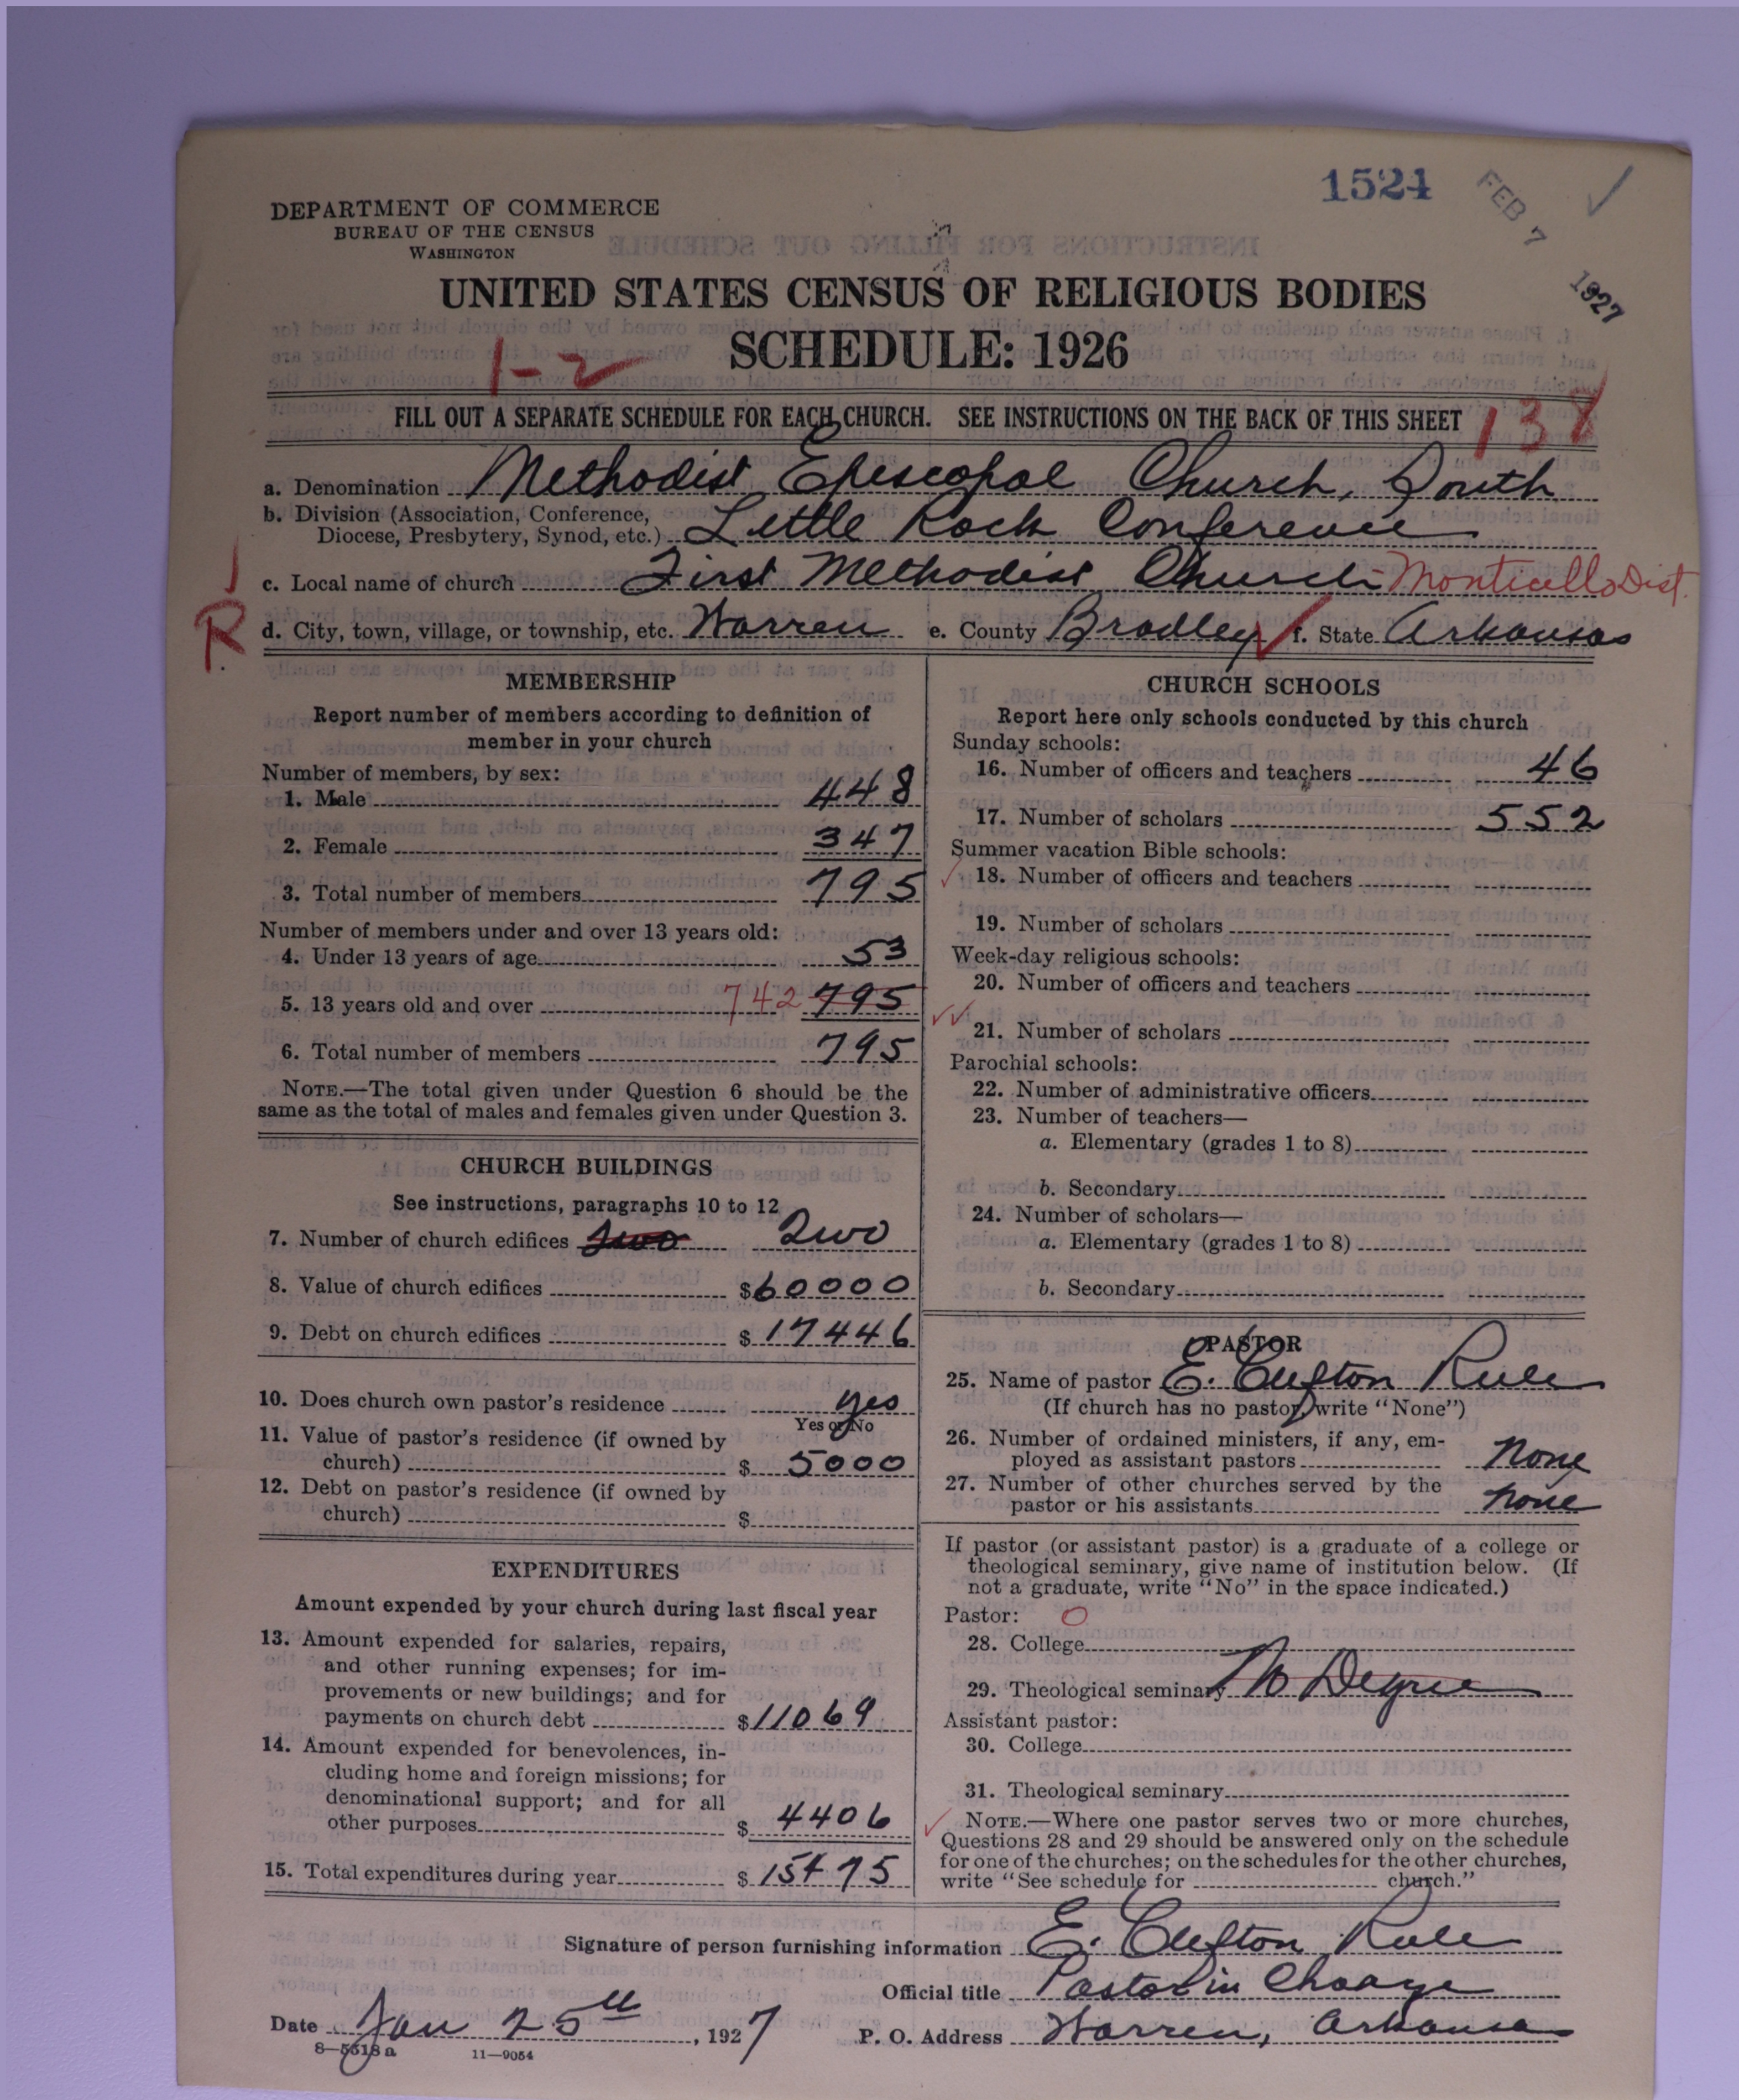 1524
FEB 7 1927
DEPARTMENT OF COMMERCE
BUREAU OF THE CENSUS
WASHINGTON
UNITED STATES CENSUS OF RELIGIOUS BODIES
SCHEDULE: 1926
1-2
FILL OUT A SEPARATE SCHEDULE FOR EACH CHURCH. SEE INSTRUCTIONS ON THE BACK OF THIS SHEET
138
a. Denomination Methodist Episcopal Church, South
b. Division (Association, Conference,
Diocese, Presbytery, Synod, etc.) Little Rock Conference
c. Local name of church First Methodist Church Monticello Dist.
R
d. City, town, village, or township, etc. Warren e. County Bradley f. State Arkansas
MEMBERSHIP
Report number of members according to definition of
member in your church
Number of members, by sex:
1. Male 448
2. Female 347
3. Total number of members 795
Number of members under and over 13 years old:
4. Under 13 years of age 53
5. 13 years old and over 742 795
6. Total number of members 795
NOTE.—The total given under Question 6 should be the
same as the total of males and females given under Question 3.
CHURCH BUILDINGS
See instructions, paragraphs 10 to 12
7. Number of church edifices Two Two
8. Value of church edifices $60000
9. Debt on church edifices $17446
10. Does church own pastor's residence yes
Yes or No
11. Value of pastor's residence (if owned by
church) $5000
12. Debt on pastor's residence (if owned by
church) $
EXPENDITURES
Amount expended by your church during last fiscal year
13. Amount expended for salaries, repairs,
and other running expenses; for im-
provements or new buildings; and for
payments on church debt $11069
14. Amount expended for benevolences, in-
cluding home and foreign missions; for
denominational support; and for all
other purposes $4406
15. Total expenditures during year $15475
CHURCH SCHOOLS
Report here only schools conducted by this church
Sunday schools:
16. Number of officers and teachers 46
17. Number of scholars 552
Summer vacation Bible schools:
18. Number of officers and teachers
19. Number of scholars
Week-day religious schools:
20. Number of officers and teachers
21. Number of scholars
Parochial schools:
22. Number of administrative officers
23. Number of teachers—
a. Elementary (grades 1 to 8)
b. Secondary
24. Number of scholars—
a. Elementary (grades 1 to 8)
b. Secondary
PASTOR
25. Name of pastor E. Clifton Rule
(If church has no pastor, write "None")
26. Number of ordained ministers, if any, em-
ployed as assistant pastors None
27. Number of other churches served by the
pastor or his assistants none
If pastor (or assistant pastor) is a graduate of a college or
theological seminary, give name of institution below. (If
not a graduate, write "No" in the space indicated.)
Pastor: O
28. College
29. Theological seminary No Degree
Assistant pastor:
30. College
31. Theological seminary
NOTE.—Where one pastor serves two or more churches,
Questions 28 and 29 should be answered only on the schedule
for one of the churches; on the schedules for the other churches,
write "See schedule for church."
Signature of person furnishing information E. Clifton Rule
Official title Pastor in Charge
Date Jan 25th, 1927 P. O. Address Warren, Arkansas
8—5518a 11—9054